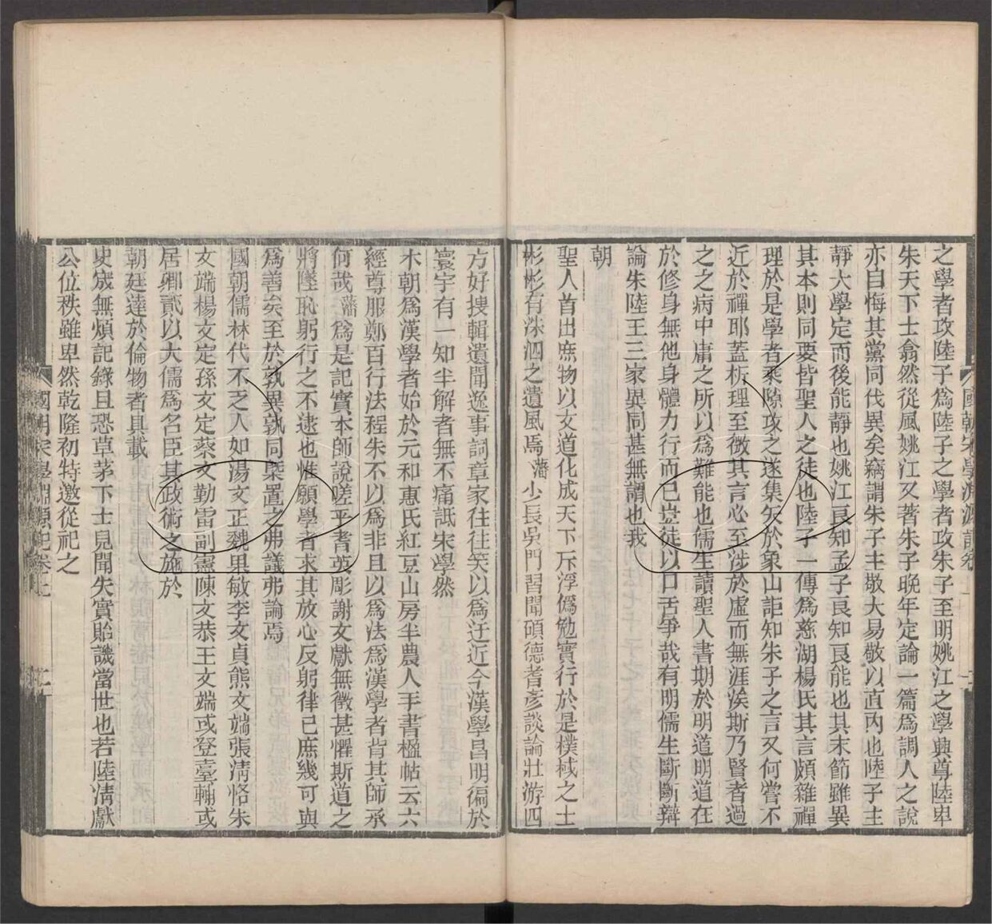 之學者攻陸子爲陸子之學者攻朱子至明姚江之學興尊陸卑
朱天下士翕然從風姚江又著朱子晚年定論一篇爲調人之說
亦自悔其黨同伐異矣竊謂朱子主敬大易敬以直內也陸子主
靜大學定而後能靜也姚江良知孟子良知良能也其末節雖異
其本則同要皆聖人之徒也陸子一傳爲慈湖楊氏其言頗雜禪
理於是學者乘隙攻之遂集矢於象山詎知朱子之言又何嘗不
近於禪耶蓋析理至微其言心至涉於虛而無涯涘斯乃賢者過
之之病中庸之所以爲難能也儒生讀聖人書期於明道明道在
於修身無他身體力行而已豈徒以口舌爭哉有明儒生斷斷辯
論朱陸王三家異同甚無謂也我
朝
聖人首出庶物以文道化成天下斥浮僞勉實行於是樸棫之士
彬彬有洙泗之遺風焉藩少長吳門習聞碩德耆彥談論壯游四
方好搜輯遺聞逸事詞章家往往笑以爲迂近今漢學昌明徧於
寰宇有一知半解者無不痛詆宋學然
本朝爲漢學者始於元和惠氏紅豆山房半農人手書楹帖云六
經尊服鄭百行法程朱不以爲非且以爲法爲漢學者背其師承
何哉藩爲是記實本師說嗟乎耆英彫謝文獻無徵甚懼斯道之
將墜恥躬行之不逮也惟願學者求其放心反躬律己庶幾可與
爲善矣至於孰異孰同槩置之弗議弗論焉
國朝儒林代不乏人如湯文正魏果敏李文貞熊文端張清恪朱
文端楊文定孫文定蔡文勤雷副憲陳文恭王文端或登臺輔或
居卿貳以大儒爲名臣其政術之施於
朝廷達於倫物者具載
史宬無煩記錄且恐草茅下士見聞失實貽譏當世也若陸清獻
公位秩雖卑然乾隆初特邀從祀之
國朝宋學淵源記卷上